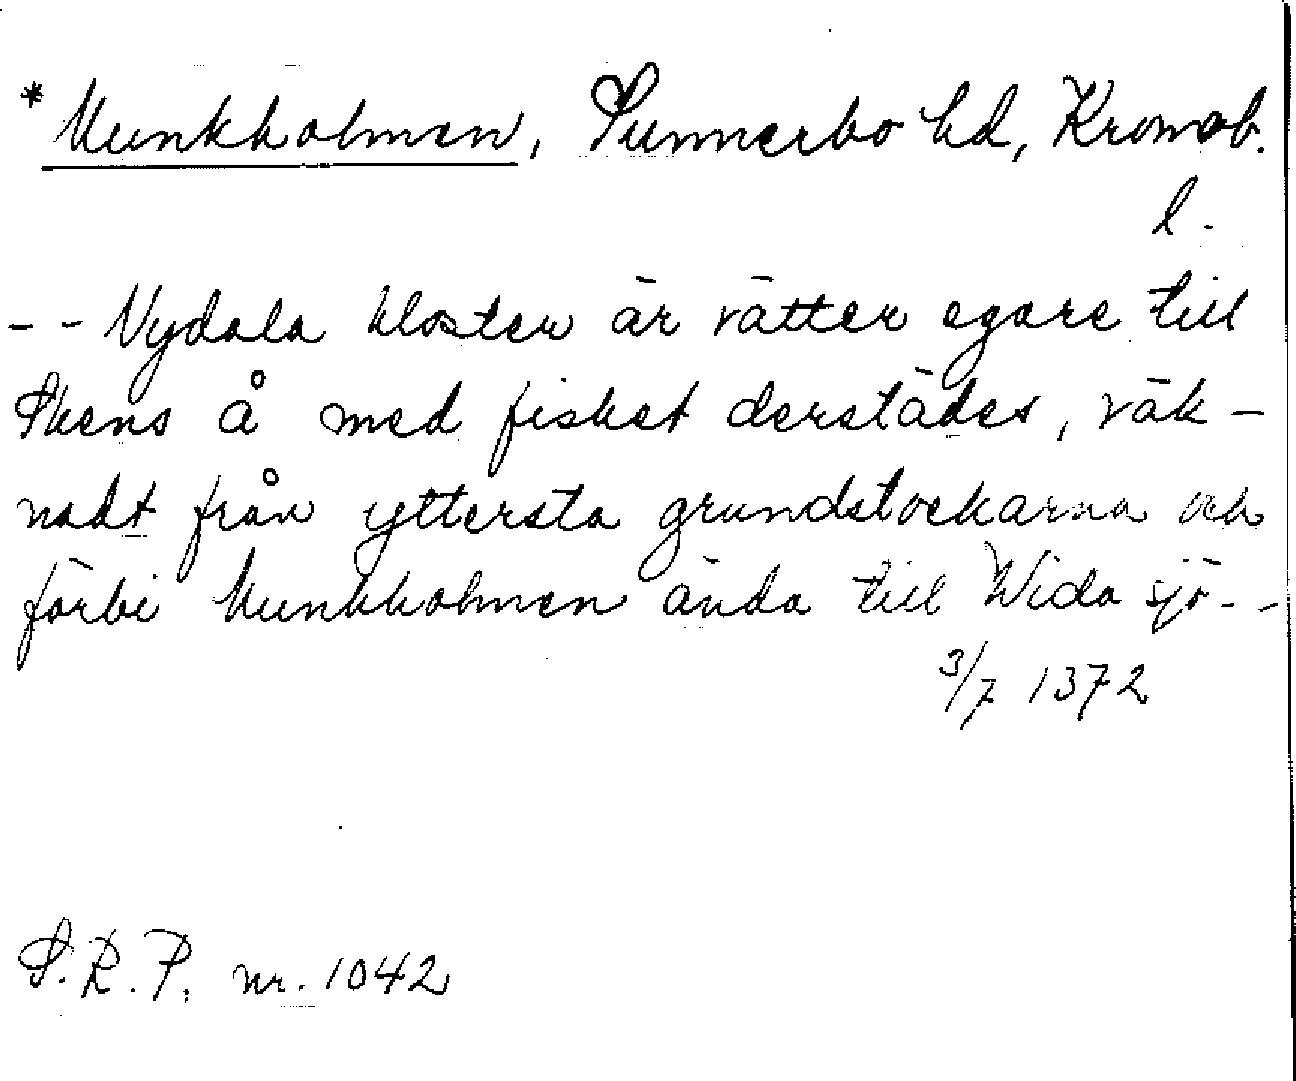 * Munkholmen, Sunnerbo hd, Kronob.
l.
- - Nydala kloster är rätter egare till
Skens å med fisket derstädes, räk-
nadt från yttersta grundstockarna och
förbi Munkholmen ända till Wida sjö - -
3/7 1372
S.R.P. nr. 1042